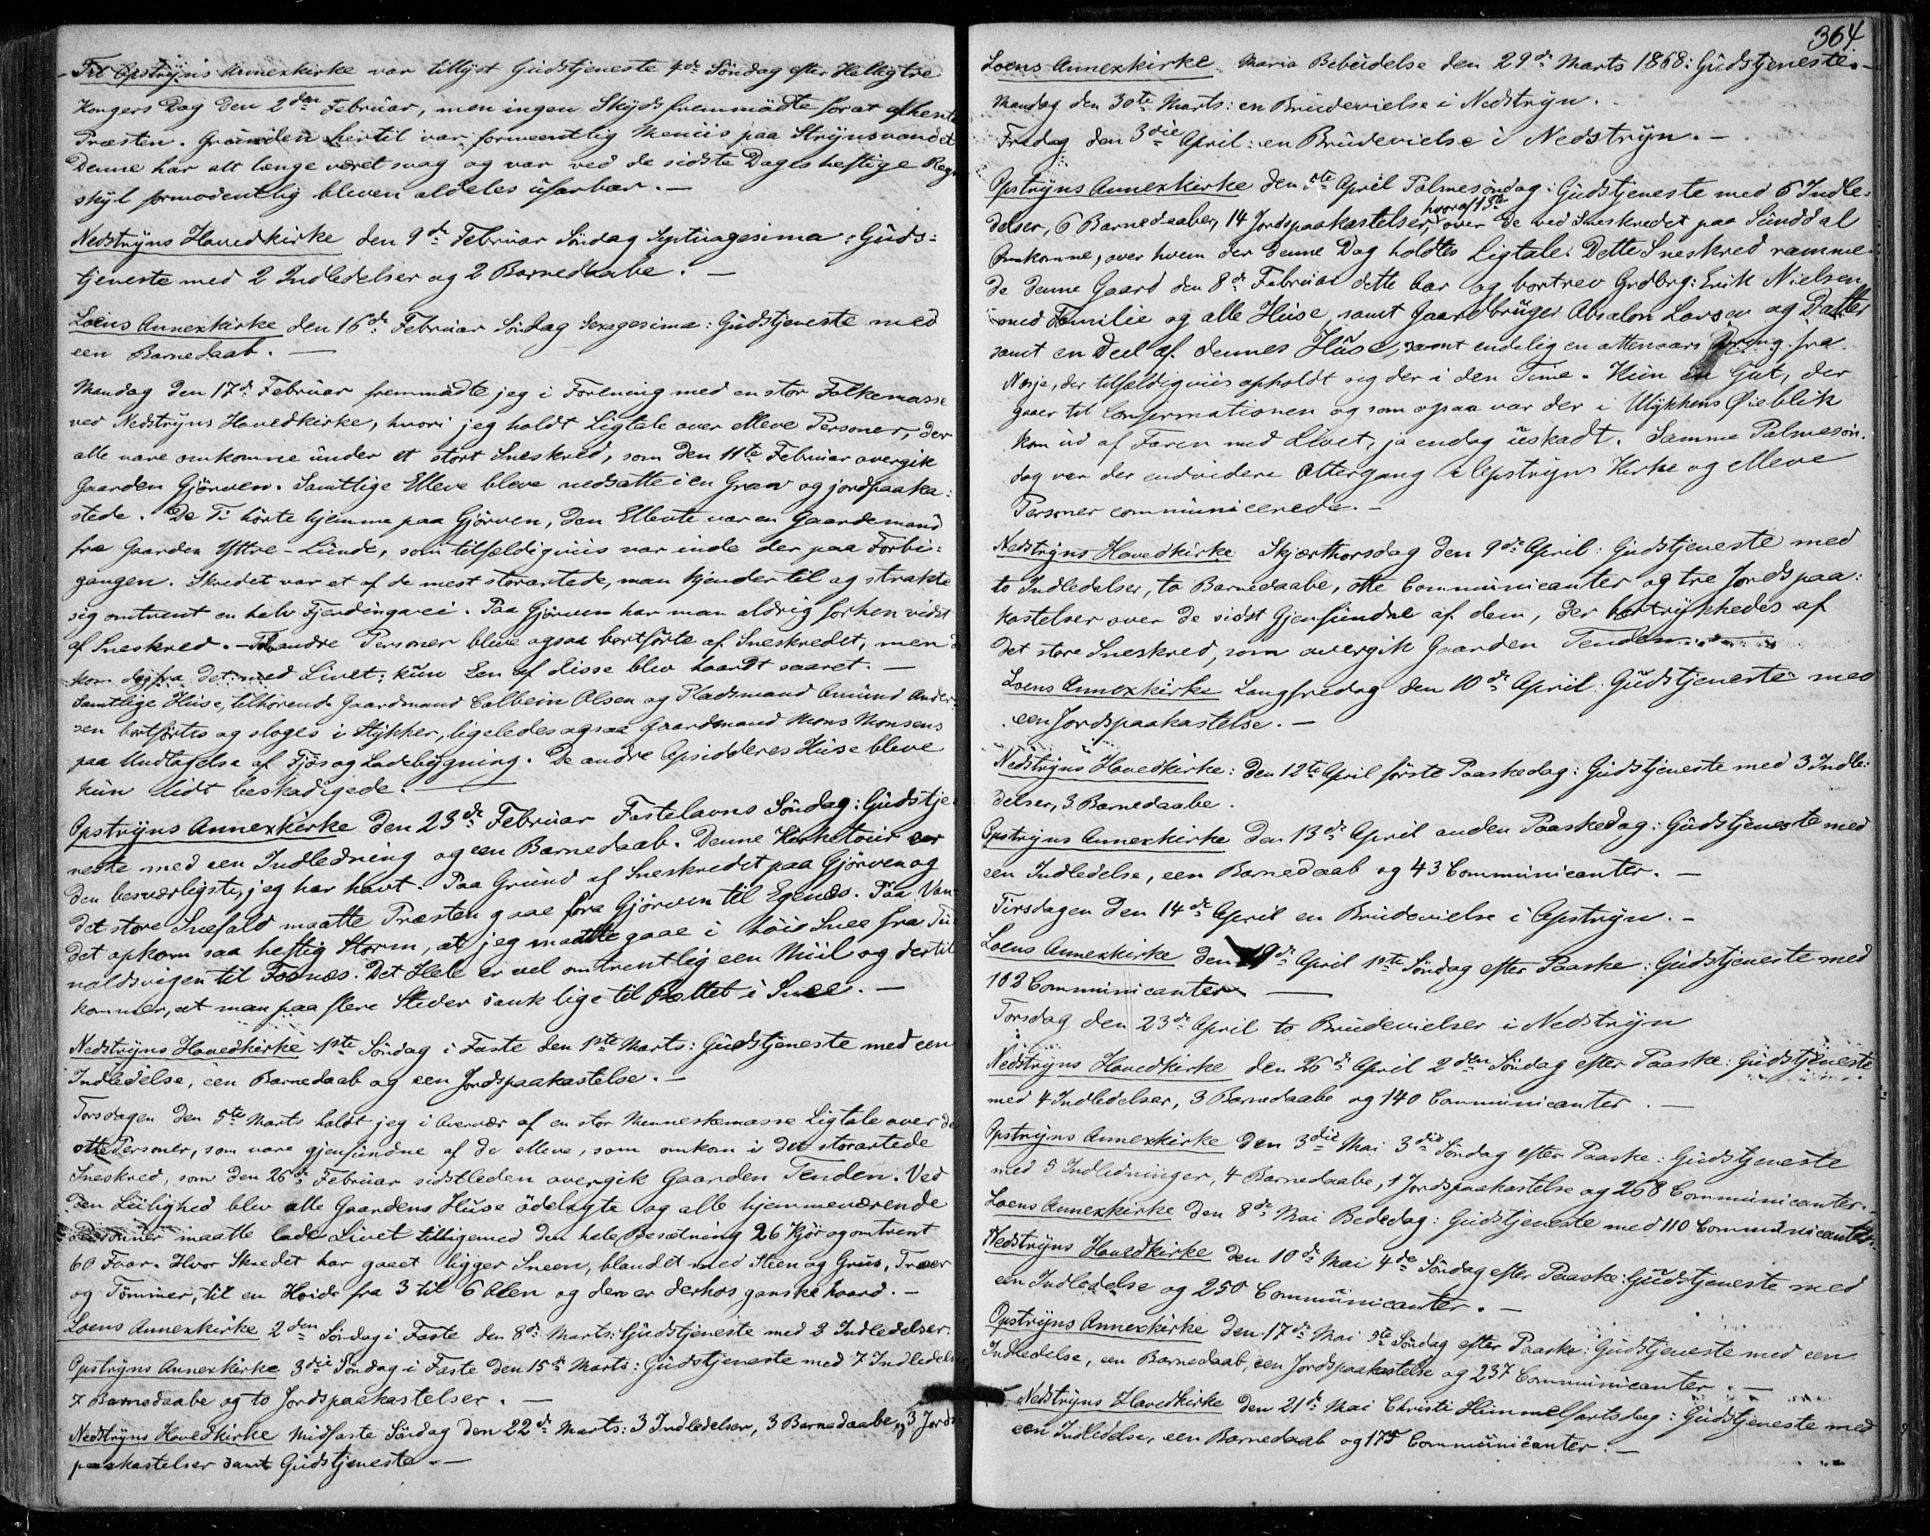 Til Opstryns Annexkirke var tillyst Gudstjeneste 4de Søndag efter Hellig tre
Kongers Dag den 2den Februar, men ingen Skyds fremmødte forat afhente
Præsten. Grunden hertil var formeentlig Meniis paa Strynsvandet
Denne har alt længe været svag og var ved de sidste Dages heftige Regn
skyl formodentlig bleven aldeles ufarbar. —
Nedstryns Hovedkirke den 9de Februar Søndag Septuagesima: Guds=
tjeneste med 2 Indledelser og 2 Barnedaabe. —
Loens Annexkirke den 16de Februar Søndag Sexagesima: Gudstjeneste med
een Barnedaab. —
Mandag den 17de Februar fremmødte jeg i Forening med en stor Folkemasse
ved Nedstryns Hovedkirke, hvori jeg holdt Ligtale over elleve Personer, der
alle vare omkomne under et stort Sneskred, som den 11te Februar overgik
Gaarden Gjørven. Samtlige Elleve bleve nedsatte i en Grav og jordpaaka=
stede. De Ti hørte hjemme paa Gjørven, den Ellevte var en Gaardemand
fra Gaarden Yttre-Lunde, som tilfældigviis var inde der paa Forbi=
gangen. Skredet var et af de mest storartede, man kjender til og strakte
sig omtrent en halv Fjerdingvei. Paa Gjørven har man aldrig forhen vidst
af Sneskred. — andre Personer bleve ogsaa bortførte af Sneskredet, men
kom sig fra det med Livet; kun Een af disse blev haardt saaret. —
Samtlige Huse, tilhørende Gaardmand Colbein Olsen og Pladsmand Amund Ander=
sen bortførtes og sloges i Stykker, ligeledes ogsaa Gaardmand Mons Monsens
paa Undtagelse af Fjøs og Ladebygning. De andre Opsidderes Huse bleve
kun lidt beskadigede. —
Opstryns Annexkirke den 23de Februar Fastelavns Søndag: Gudstje=
neste med een Indledning og een Barnedaab. Denne Kirketour var
den besværligste, jeg har havt. Paa Grund af Sneskredet paa Gjørven og
det store Snefald maatte Præsten gaae fra Gjørven til Egenæs. Paa Van=
det opkom saa heftig Storm, at jeg maatte gaae i høie Snee fra Tu=
naldsvigen til Fosnæs. Det Hele er vel omtrentlig een Miil og dertil
kommer, at man paa flere Steder sank lige til Beltet i Snee. —
Nedstryns Hovedkirke 1ste Søndag i Faste den 1ste Marts: Gudstjeneste med een
Indledelse, een Barnedaab og een Jordspaakastelse. —
Torsdagen den 5te Marts holdt jeg i Overvær af en stor Menneskemasse Ligtale over de
otte Personer, som vare gjenfundne af de elleve, som omkom i det storartede
Sneskred, som den 26de Februar sidstleden overgik Gaarden Tenden. Ved
den Leilighed blev alle Gaardens Huse ødelagte og alle hjemmeværende
Personer maatte lade Livet tilligemed den hele Besætning 26 Kjør og omtrent
60 Faar. Hvor Skredet har gaaet ligger Sneen, blandet med Steen og Grus, Træer
og Tømmer, til en Høide fra 3 til 6 Alen og den er derhos ganske haard. —
Loens Annexkirke 2den Søndag i Faste den 8de Marts: Gudstjeneste med 2 Indledelser.
Opstryns Annexkirke 3die Søndag i Faste den 15de Marts: Gudstjeneste med 7 Indledelser
7 Barnedaabe og to Jordspaakastelser. —
Nedstryns Hovedkirke Midfaste Søndag den 22de Marts: 3 Indledelser, 3 Barnedaabe, og 3 Jords
paakastelser samt Gudstjeneste. —
364
Loens Annexkirke. Maria Bebudelse den 29de Marts 1868: Gudstjeneste. —
Mandag den 30te Marts: en Brudevielse i Nedstryn.
Fredag den 3die April: en Brudevielse i Nedstryn. —
Opstryns Annexkirke den 5te April Palmesøndag: Gudstjeneste med 6 Indle=
delser, 6 Barnedaaber, 14 Jordspaakastelser, hvoraf 13 over de ved Sneskredet paa Sunddal
Omkomne, over hvem der denne Dag holdtes Ligtale. Dette Sneskred ramme=
de denne Gaard den 8de Februar dette Aar og bortrev Grdbrg: Erik Nielsen
med Familie og alle Huse, samt Gaardbruger Absalon Larsen og Datter
samt en Deel af dennes Huse, samt endelig en attenaars Dreng fra
Nosje, der tilfældigviis opholdt sig der i den Time. Kun en Gut, der
gaaer til Confirmationen og som ogsaa var der i Ulykkens Øieblik
kom ud af Faren med Livet, ja endog uskadt. Samme Palmesøn=
dag var der endvidere Altergang i Opstryns Kirke og elleve
Personer communicerede. —
Nedstryns Hovedkirke Skjærthorsdag den 9de April: Gudstjeneste med
to Indledelser, to Barnedaabe, otte Communicanter og tre Jordspaa=
kastelser over de sidst Gjenfundne af dem, der borttrykkedes af
det store Sneskred, som overgik Gaarden Tenden.
Loens Annexkirke Langfredag den 10de April: Gudstjeneste med
een Jordspaakastelse. —
Nedstryns Hovedkirke: den 12te April første Paaskedag: Gudstjeneste med 3 Indle=
delser, 3 Barnedaabe.
Opstryns Annexkirke den 13de April anden Paaskedag: Gudstjeneste med
een Indledelse, een Barnedaab og 43 Communicanter. —
Tirsdagen den 14de April en Brudevielse i Opstryn. —
Loens Annexkirke den 19de April 1ste Søndag efter Paaske: Gudstjeneste med
102 Communicanter —
Torsdag den 23de April to Brudevielser i Nedstryn
Nedstryns Hovedkirke den 26de April 2den Søndag efter Paaske: Gudstjeneste
med 4 Indledelser, 3 Barnedaabe og 140 Communicanter. —
Opstryns Annexkirke den 3die Mai 3die Søndag efter Paaske: Gudstjeneste
med 5 Indledninger, 4 Barnedaabe, 1 Jordspaakastelse og 268 Communicanter.
Loens Annexkirke den 8de Mai Bededag: Gudstjeneste med 110 Communicanter.
Nedstryns Hovedkirke den 10de Mai 4de Søndag efter Paaske: Gudstjeneste med
een Indledelse og 250 Communicanter. —
Opstryns Annexkirke den 17de Mai 5te Søndag efter Paaske: Gudstjeneste med een
Indledelse, een Barnedaab, een Jordspaakastelse og 237 Communicanter. —
Nedstryns Hovedkirke den 21de Mai Christi Himmelfartsdag: Gudstjeneste med
een Indledelse, een Barnedaab og 175 Communicanter. —